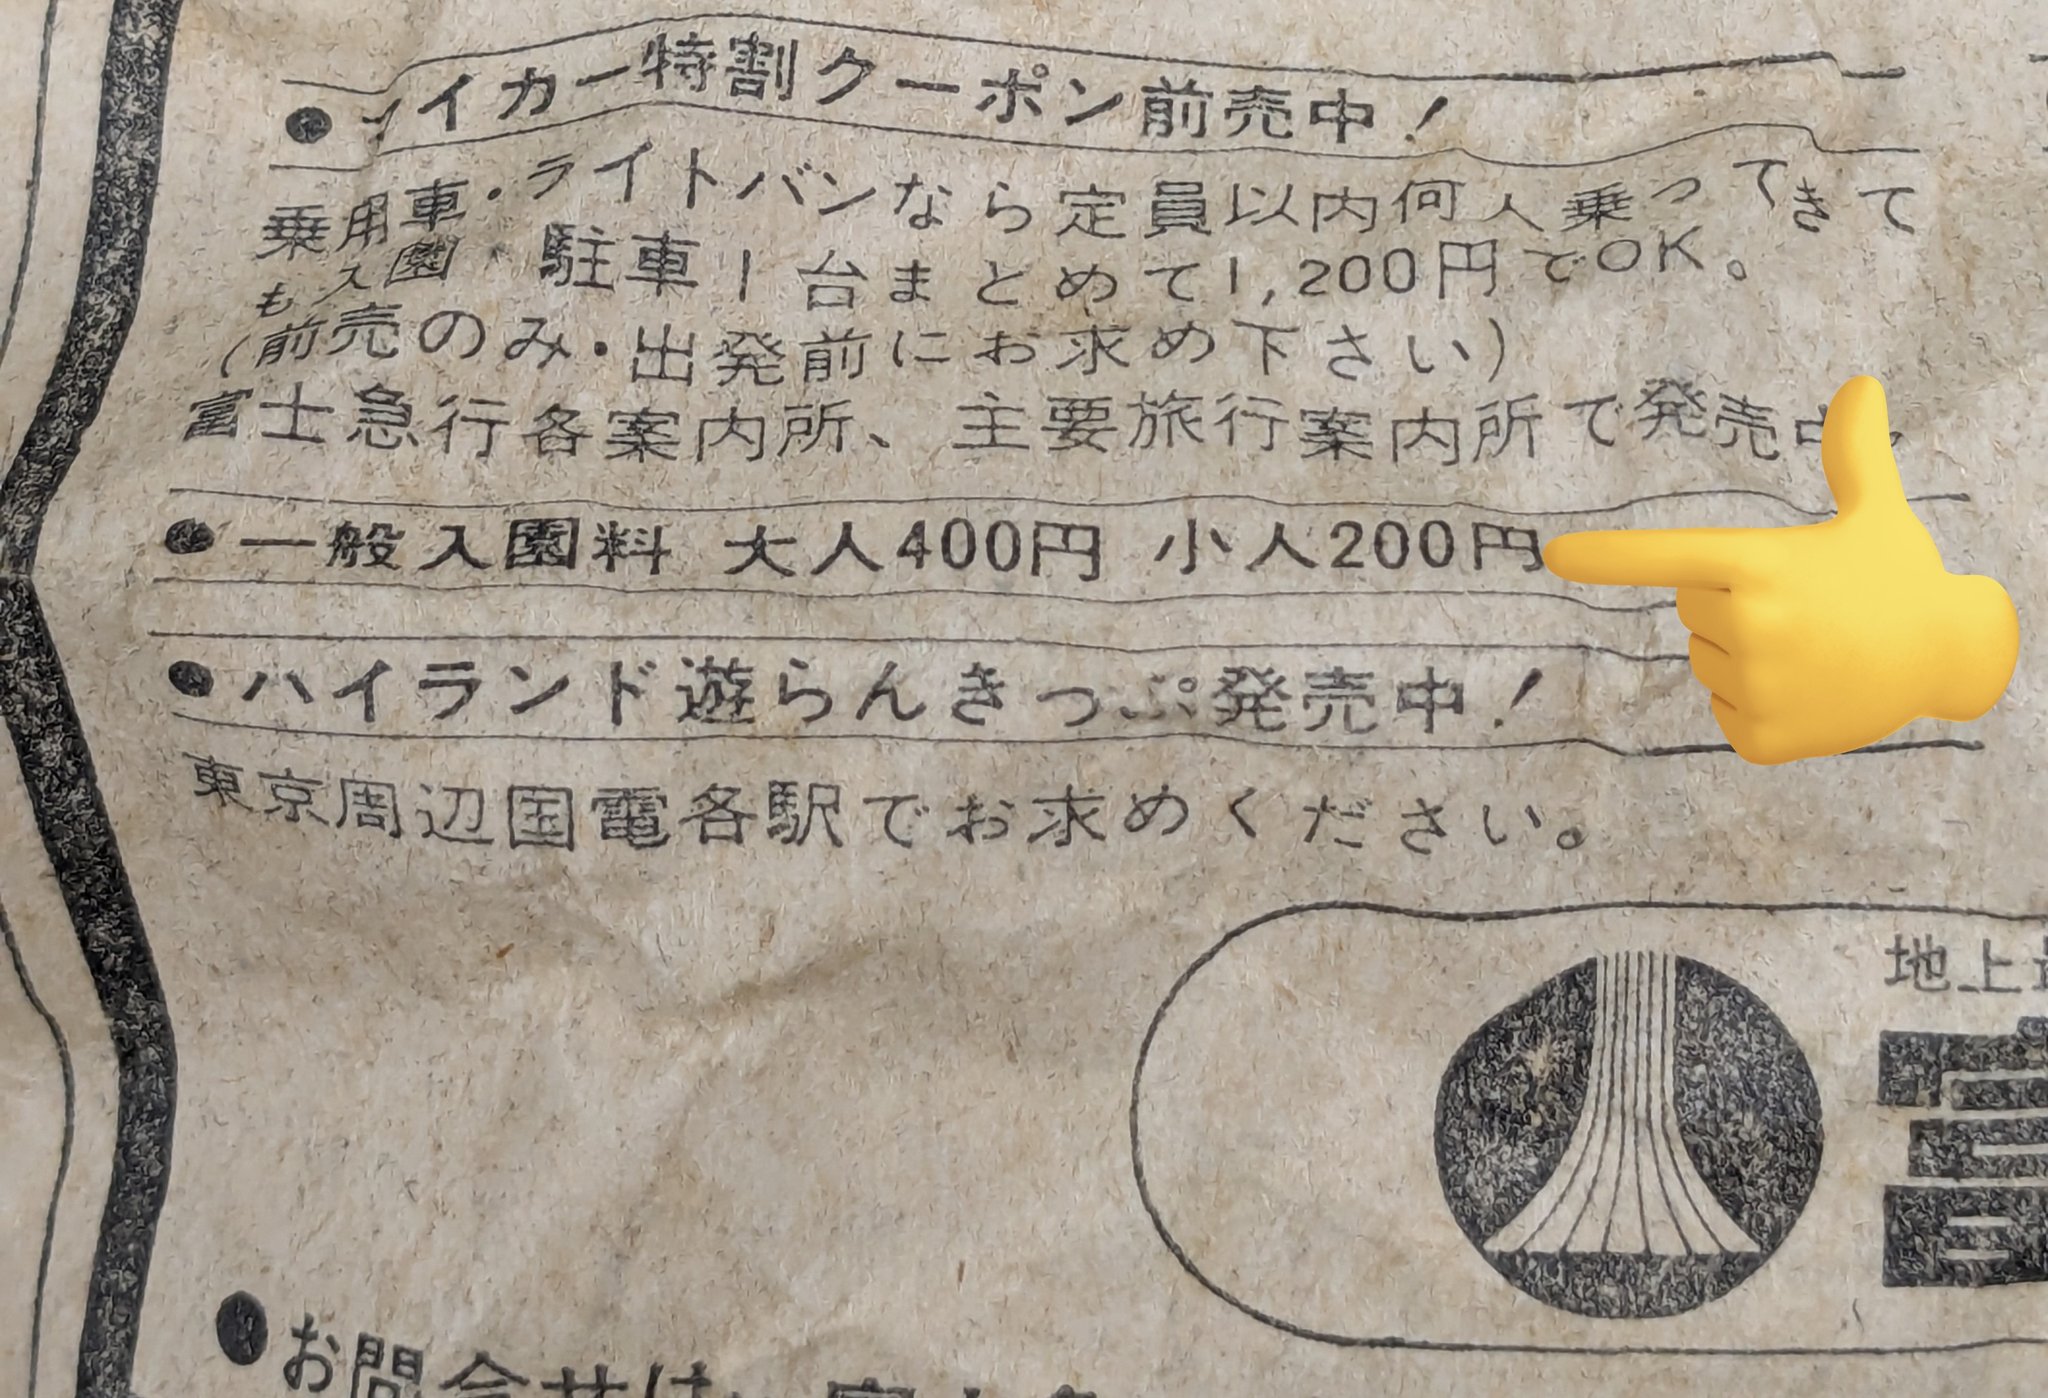 ●マイカー特割クーポン前売中!
乗用車・ライトバンなら定員以内何人乗ってきて
も入園・駐車1台まとめて1,200円でOK。
(前売のみ・出発前にお求め下さい)
富士急行各案内所、主要旅行案内所で発売中。
●一般入園料 大人400円 小人200円
●ハイランド遊らんきっぷ発売中!
東京周辺国電各駅でお求めください。
地上
●お問合せは